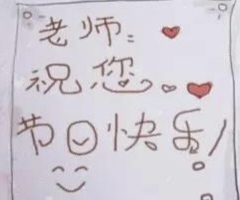 老师:
祝您
节日快乐!